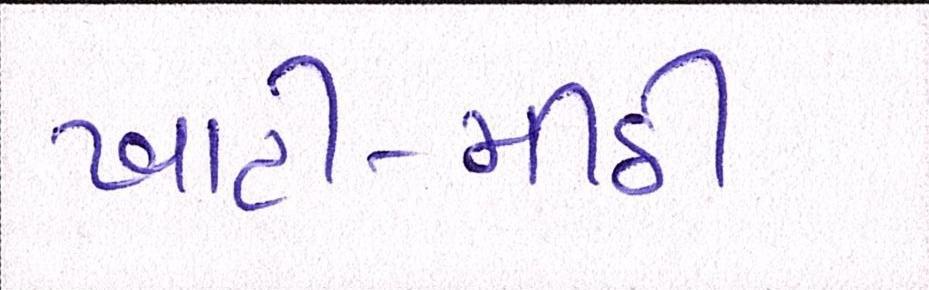 ખાટી-મીઠી